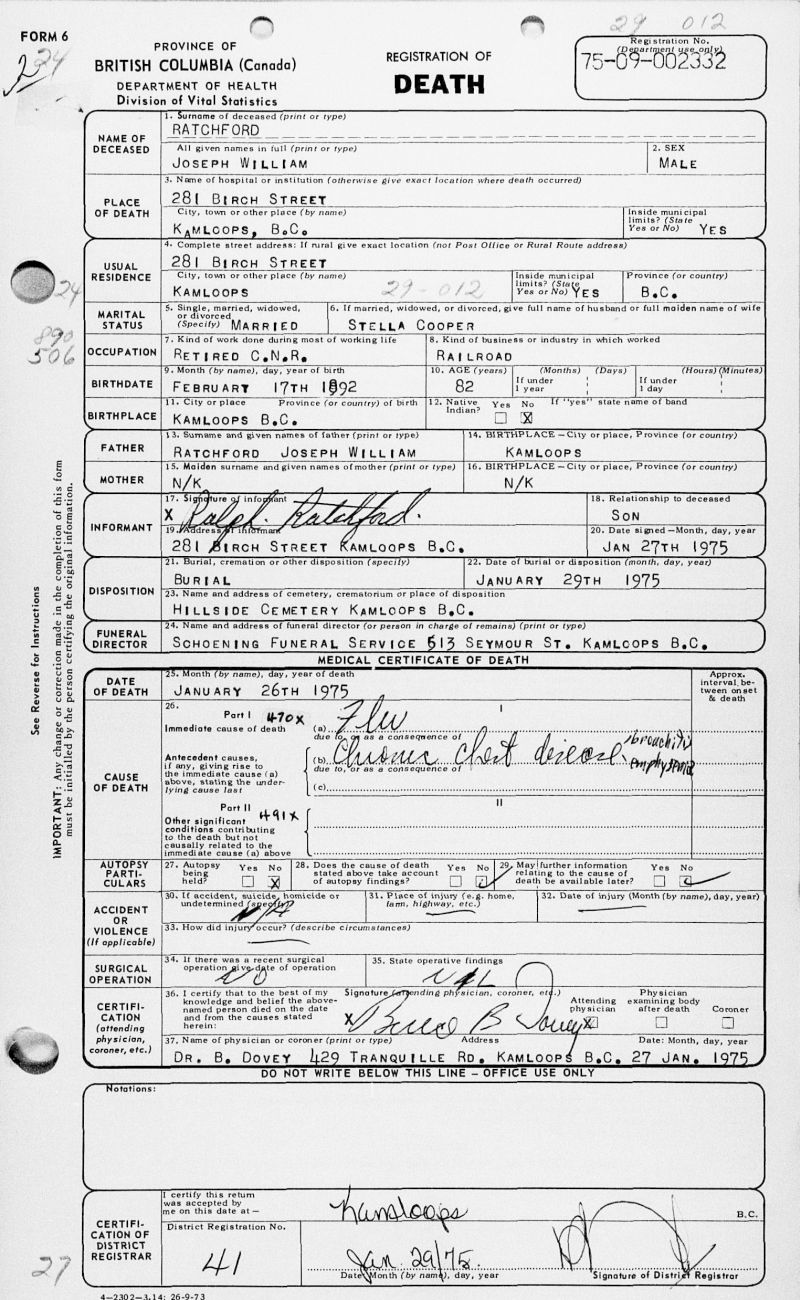 29 012
FORM 6
PROVINCE OF
BRITISH COLUMBIA (Canada)
DEPARTMENT OF HEALTH
Division of Vital Statistics
REGISTRATION OF
DEATH
Registration No.
(Department use only)
75-09-002332
NAME OF DECEASED
1. Surname of deceased (print or type)
RATCHFORD
All given names in full (print or type)
JOSEPH WILLIAM
2. SEX
MALE
PLACE OF DEATH
3. Name of hospital or institution (otherwise give exact location where death occurred)
281 BIRCH STREET
City, town or other place (by name)
KAMLOOPS, B.C.
Inside municipal limits? (State Yes or No) YES
USUAL RESIDENCE
4. Complete street address: If rural give exact location (not Post Office or Rural Route address)
281 BIRCH STREET
City, town or other place (by name)
KAMLOOPS 29-012
Inside municipal limits? (State Yes or No) YES
Province (or country)
B.C.
24
MARITAL STATUS
5. Single, married, widowed, or divorced (Specify) MARRIED
6. If married, widowed, or divorced, give full name of husband or full maiden name of wife
STELLA COOPER
890
506
OCCUPATION
7. Kind of work done during most of working life
RETIRED C.N.R.
8. Kind of business or industry in which worked
RAILROAD
BIRTHDATE
9. Month (by name), day, year of birth
FEBRUARY 17TH 1892
10. AGE (years)
82
(Months) (Days)
If under 1 year
(Hours) (Minutes)
If under 1 day
BIRTHPLACE
11. City or place Province (or country) of birth
KAMLOOPS B.C.
12. Native Indian? Yes No X
If "yes" state name of band
FATHER
13. Surname and given names of father (print or type)
RATCHFORD JOSEPH WILLIAM
14. BIRTHPLACE - City or place, Province (or country)
KAMLOOPS
MOTHER
15. Maiden surname and given names of mother (print or type)
N/K
16. BIRTHPLACE - City or place, Province (or country)
N/K
INFORMANT
17. Signature of informant
X Ralph Ratchford.
18. Relationship to deceased
SON
19. Address of informant
281 BIRCH STREET KAMLOOPS B.C.
20. Date signed - Month, day, year
JAN 27TH 1975
DISPOSITION
21. Burial, cremation or other disposition (specify)
BURIAL
22. Date of burial or disposition (month, day, year)
JANUARY 29TH 1975
23. Name and address of cemetery, crematorium or place of disposition
HILLSIDE CEMETERY KAMLOOPS B.C.
FUNERAL DIRECTOR
24. Name and address of funeral director (or person in charge of remains) (print or type)
SCHOENING FUNERAL SERVICE 513 SEYMOUR ST. KAMLOOPS B.C.
See Reverse for Instructions
IMPORTANT: Any change or correction made in the completion of this form
must be initialled by the person certifying the original information.
MEDICAL CERTIFICATE OF DEATH
DATE OF DEATH
25. Month (by name), day, year of death
JANUARY 26TH 1975
Approx. interval between onset & death
CAUSE OF DEATH
26. Part I 470X
I
Immediate cause of death
(a) Flu
due to, or as a consequence of
Antecedent causes, if any, giving rise to the immediate cause (a) above, stating the underlying cause last
(b) Chronic chest disease, bronchitis emphysema
due to, or as a consequence of
(c)
Part II 491X
II
Other significant conditions contributing to the death but not causally related to the immediate cause (a) above
AUTOPSY PARTICULARS
27. Autopsy being held? Yes No X
28. Does the cause of death stated above take account of autopsy findings? Yes No
29. May further information relating to the cause of death be available later? Yes No
ACCIDENT OR VIOLENCE
(If applicable)
30. If accident, suicide, homicide or undetermined (specify)
31. Place of injury (e.g. home, farm, highway, etc.)
32. Date of injury (Month (by name), day, year)
33. How did injury occur? (describe circumstances)
SURGICAL OPERATION
34. If there was a recent surgical operation give date of operation
NO
35. State operative findings
CERTIFICATION
(attending physician, coroner, etc.)
36. I certify that to the best of my knowledge and belief the above-named person died on the date and from the causes stated herein:
Signature (attending physician, coroner, etc.)
X
Attending physician X
Physician examining body after death
Coroner
37. Name of physician or coroner (print or type) Address Date: Month, day, year
DR. B. DOVEY 429 TRANQUILLE RD. KAMLOOPS B.C. 27 JAN. 1975
DO NOT WRITE BELOW THIS LINE - OFFICE USE ONLY
Notations:
CERTIFICATION OF DISTRICT REGISTRAR
I certify this return was accepted by me on this date at -
Kamloops B.C.
District Registration No.
41
Jan. 29/75.
Date: Month (by name), day, year
Signature of District Registrar
27
4-2302-3.14: 26-9-73